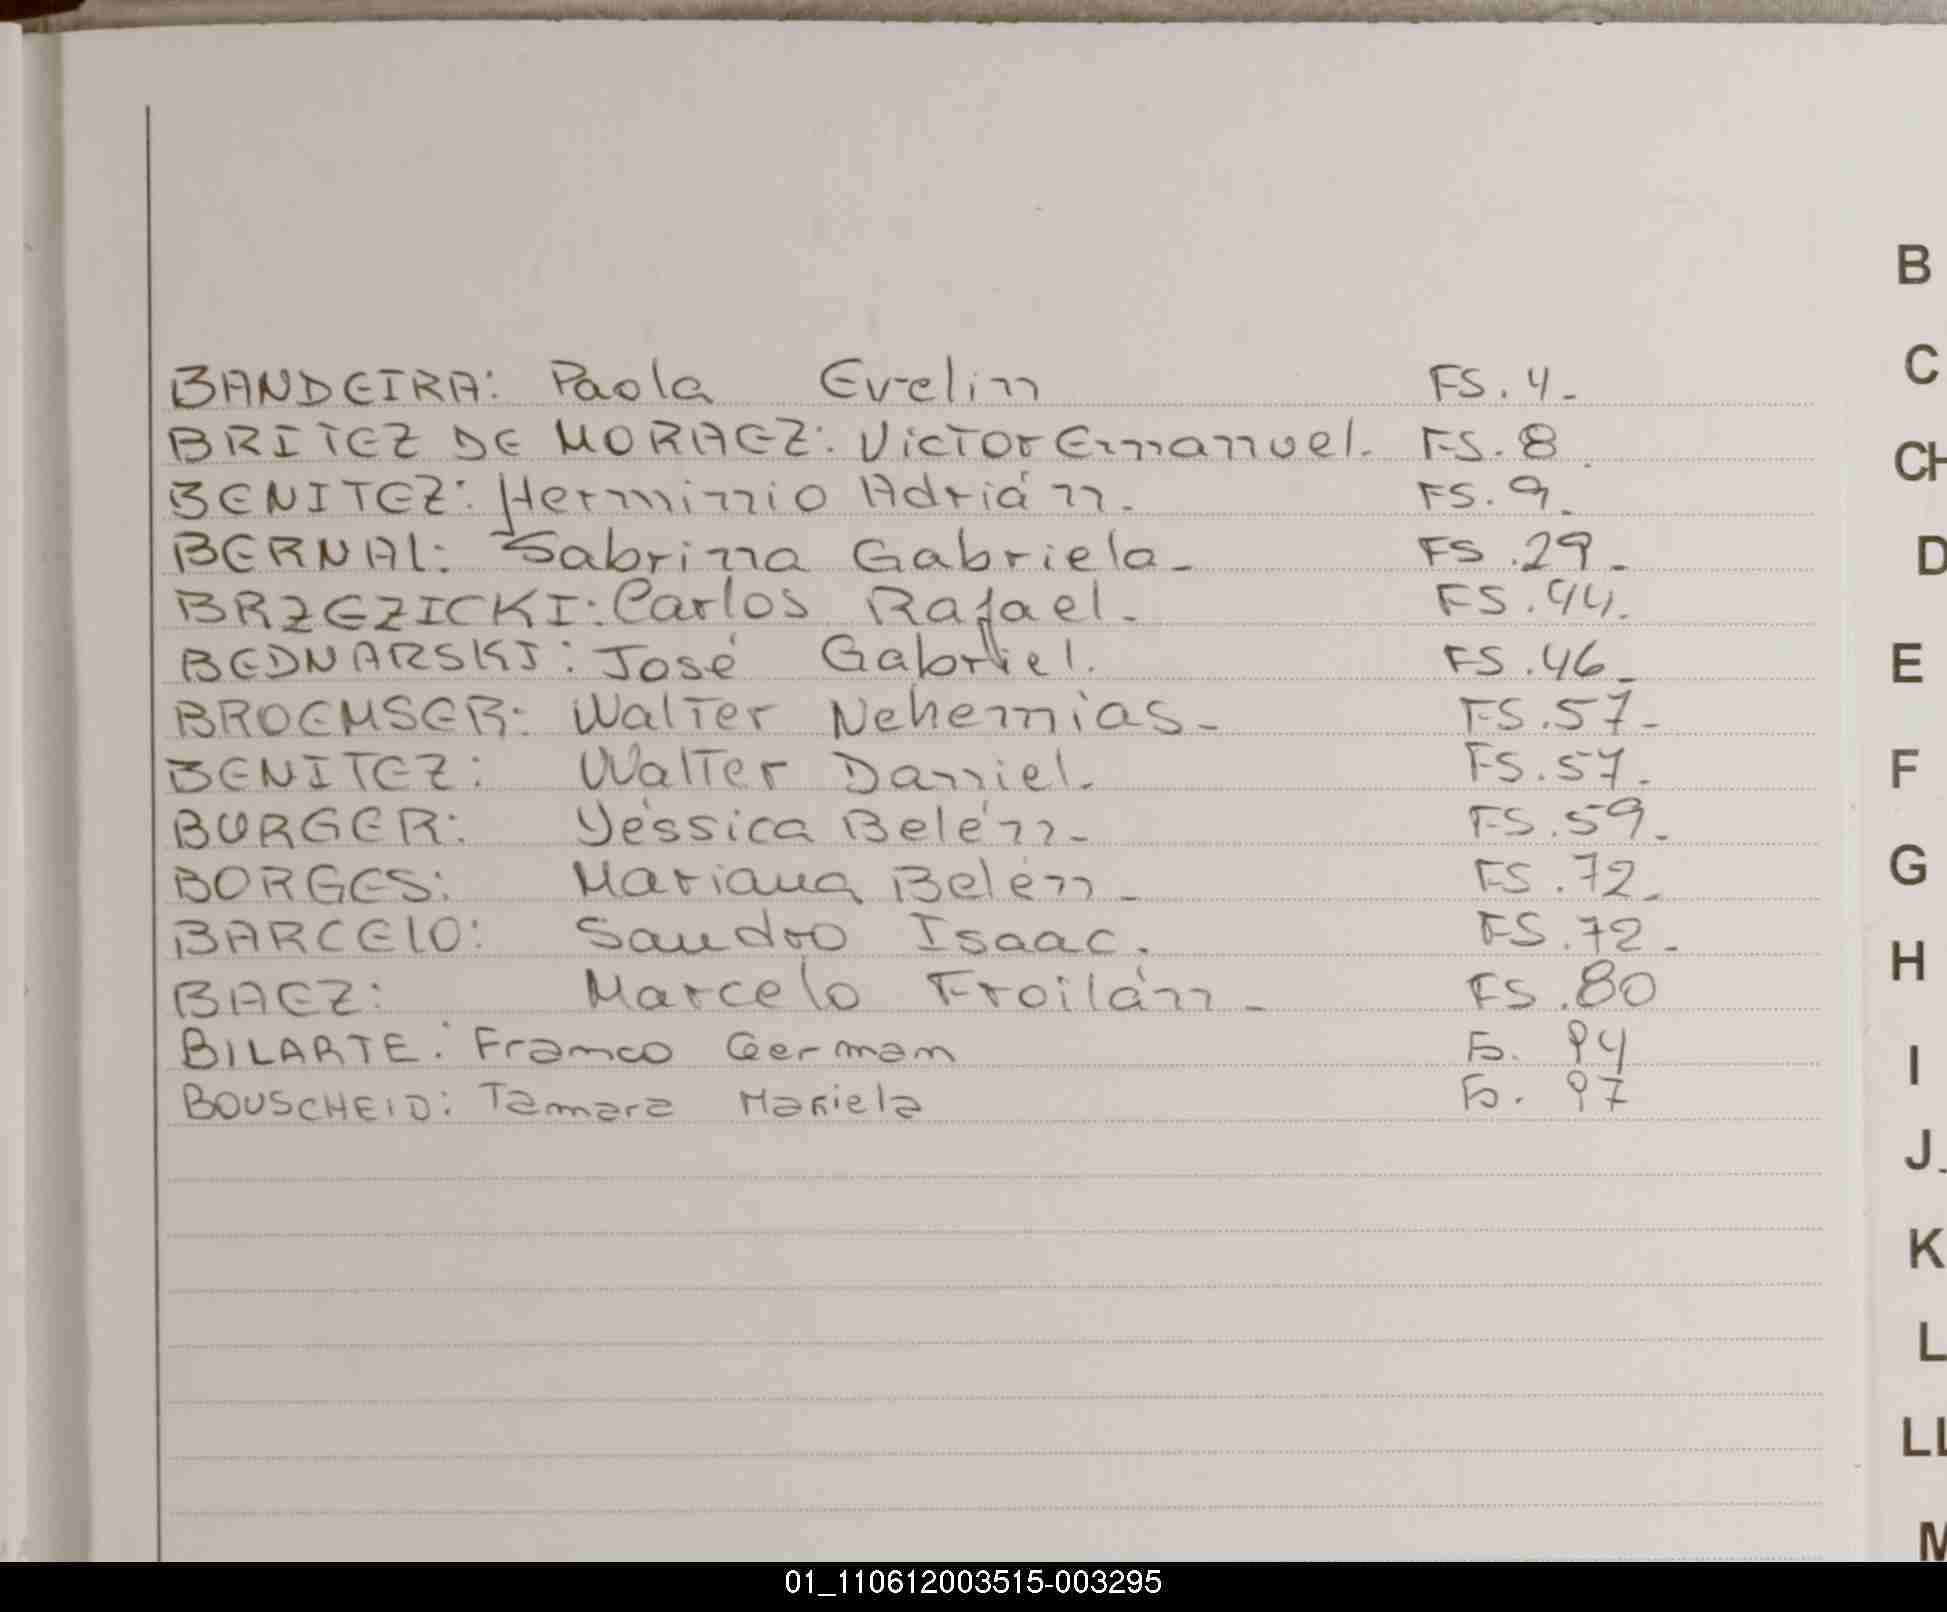 BANDEIRA: Paola Evelin FS. 4.-
BRITEZ DE MORAEZ: Victor Emanuel. FS. 8.
BENITEZ: Herminio Adrián. FS. 9.
BERNAL: Sabrina Gabriela- FS. 29-
BRZEZICKI: Carlos Rafael. FS. 44.
BEDNARSKI: José Gabriel. FS. 46-
BROEMSER: Walter Nehemias- FS. 57-
BENITEZ: Walter Daniel. FS. 57.
BURGER: Yéssica Belén- FS. 59-
BORGES: Mariana Belén- FS. 72-
BARCELO: Sandro Isaac. FS. 72-
BAEZ: Marcelo Froilán- FS. 80
BILARTE: Franco German Fs. 94
BOUSCHEID: Tamara Mariela Fs. 97
B
C
CH
D
E
F
G
H
I
J
K
L
LL
M
01_110612003515-003295